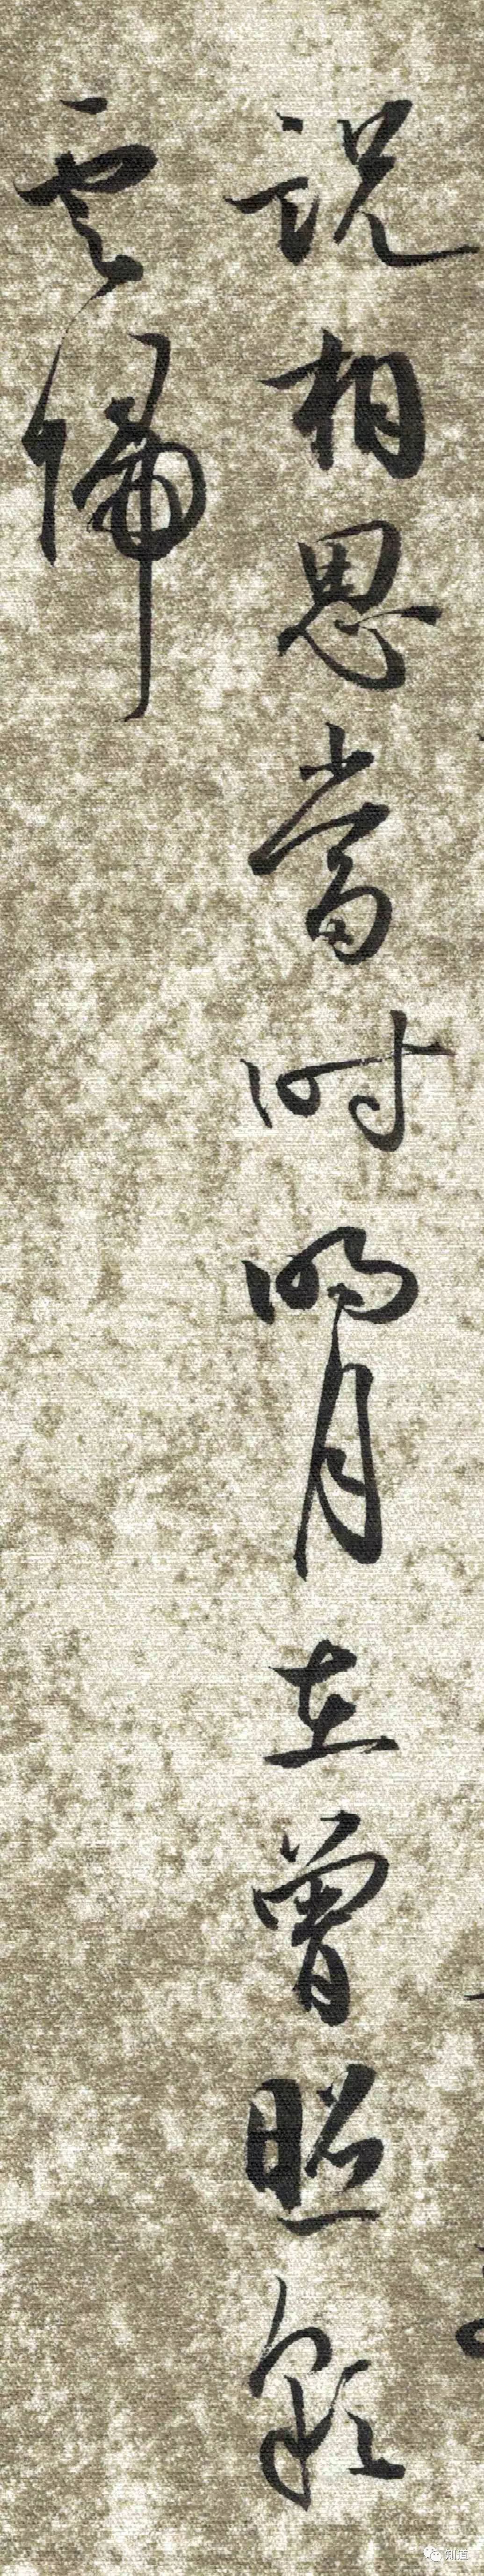 説相思當时明月在曾照彩
雲歸